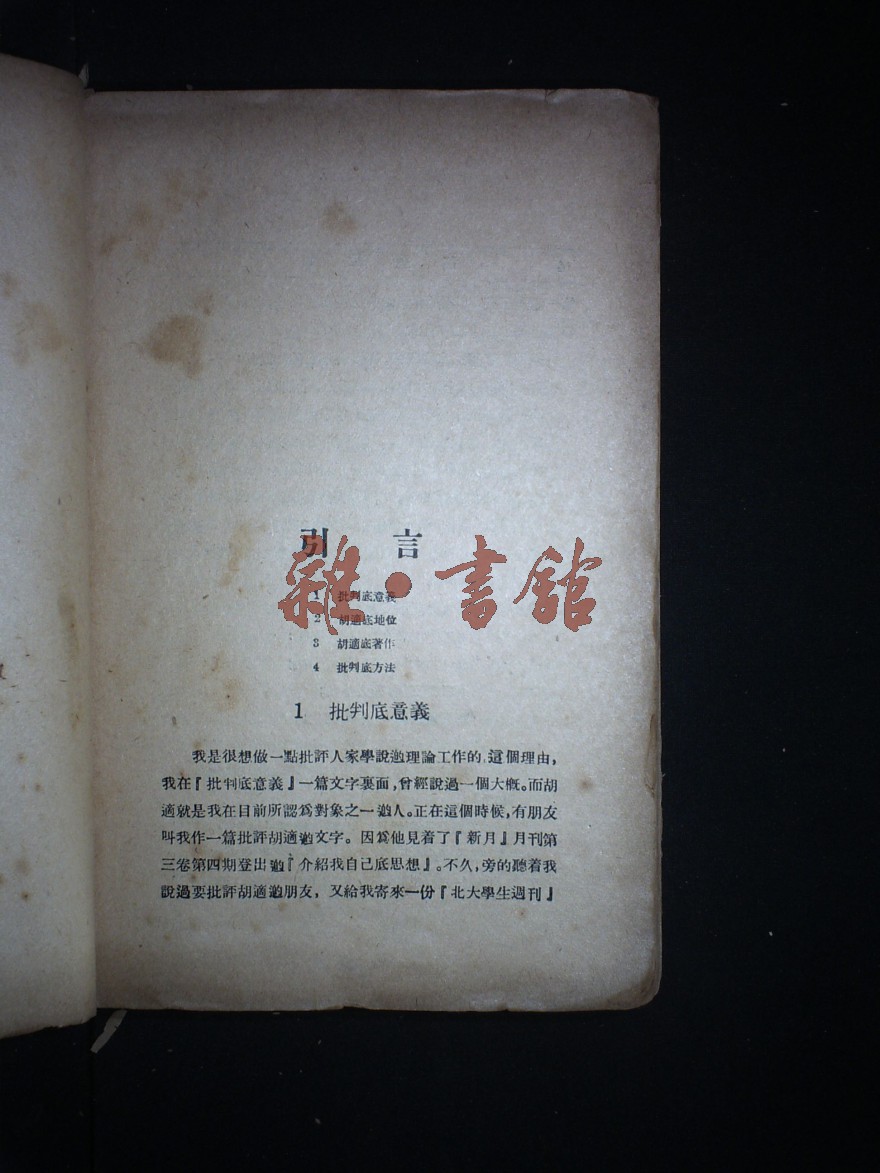 引 言
雜·書館
1 批判底意義
2 胡適底地位
3 胡適底著作
4 批判底方法
1 批判底意義
我是很想做一點批評人家學說理論工作的。這個理由，
我在『批判底意義』一篇文字裏面，曾經說過一個大槪。而胡
適就是我在目前所認爲對象之一人。正在這個時候，有朋友
叫我作一篇批評胡適文字。因爲他見着了『新月』月刊第
三卷第四期登出『介紹我自己底思想』。不久，旁的聽着我
說過要批評胡適朋友，又給我寄來一份『北大學生週刊』